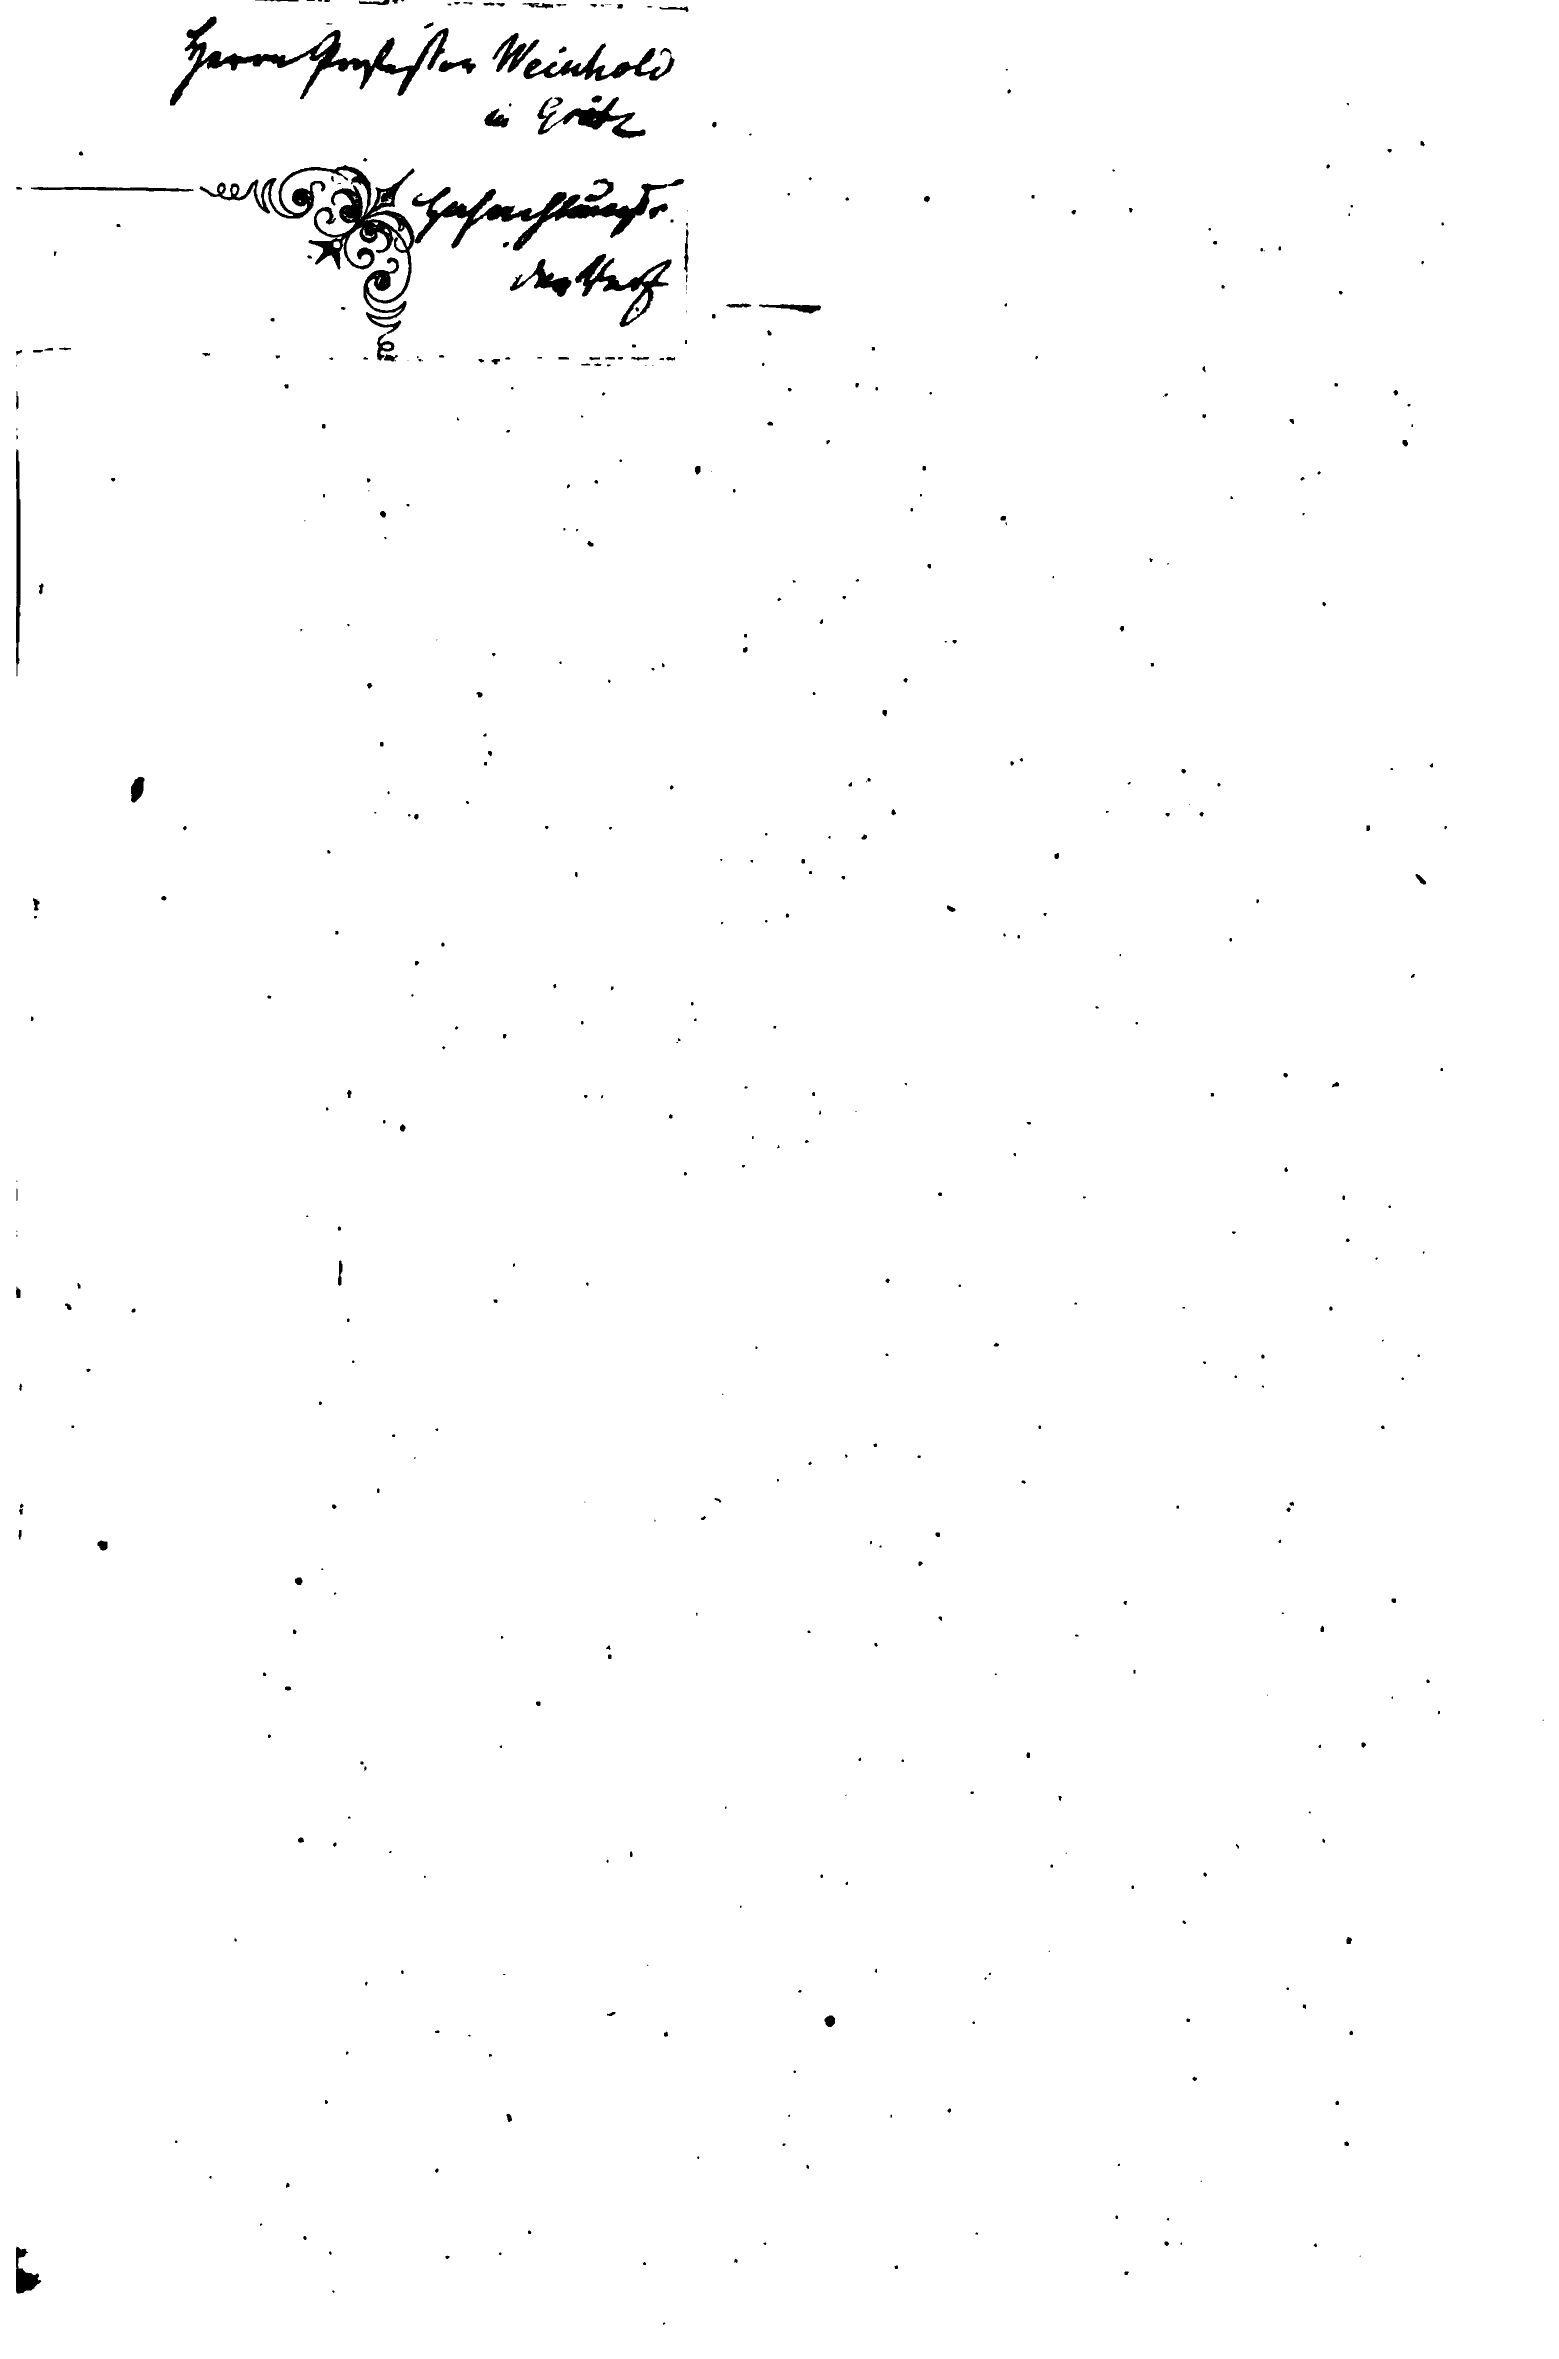 Herrn Professor Weinhold
in Grätz
hochachtungsv.
der Verf